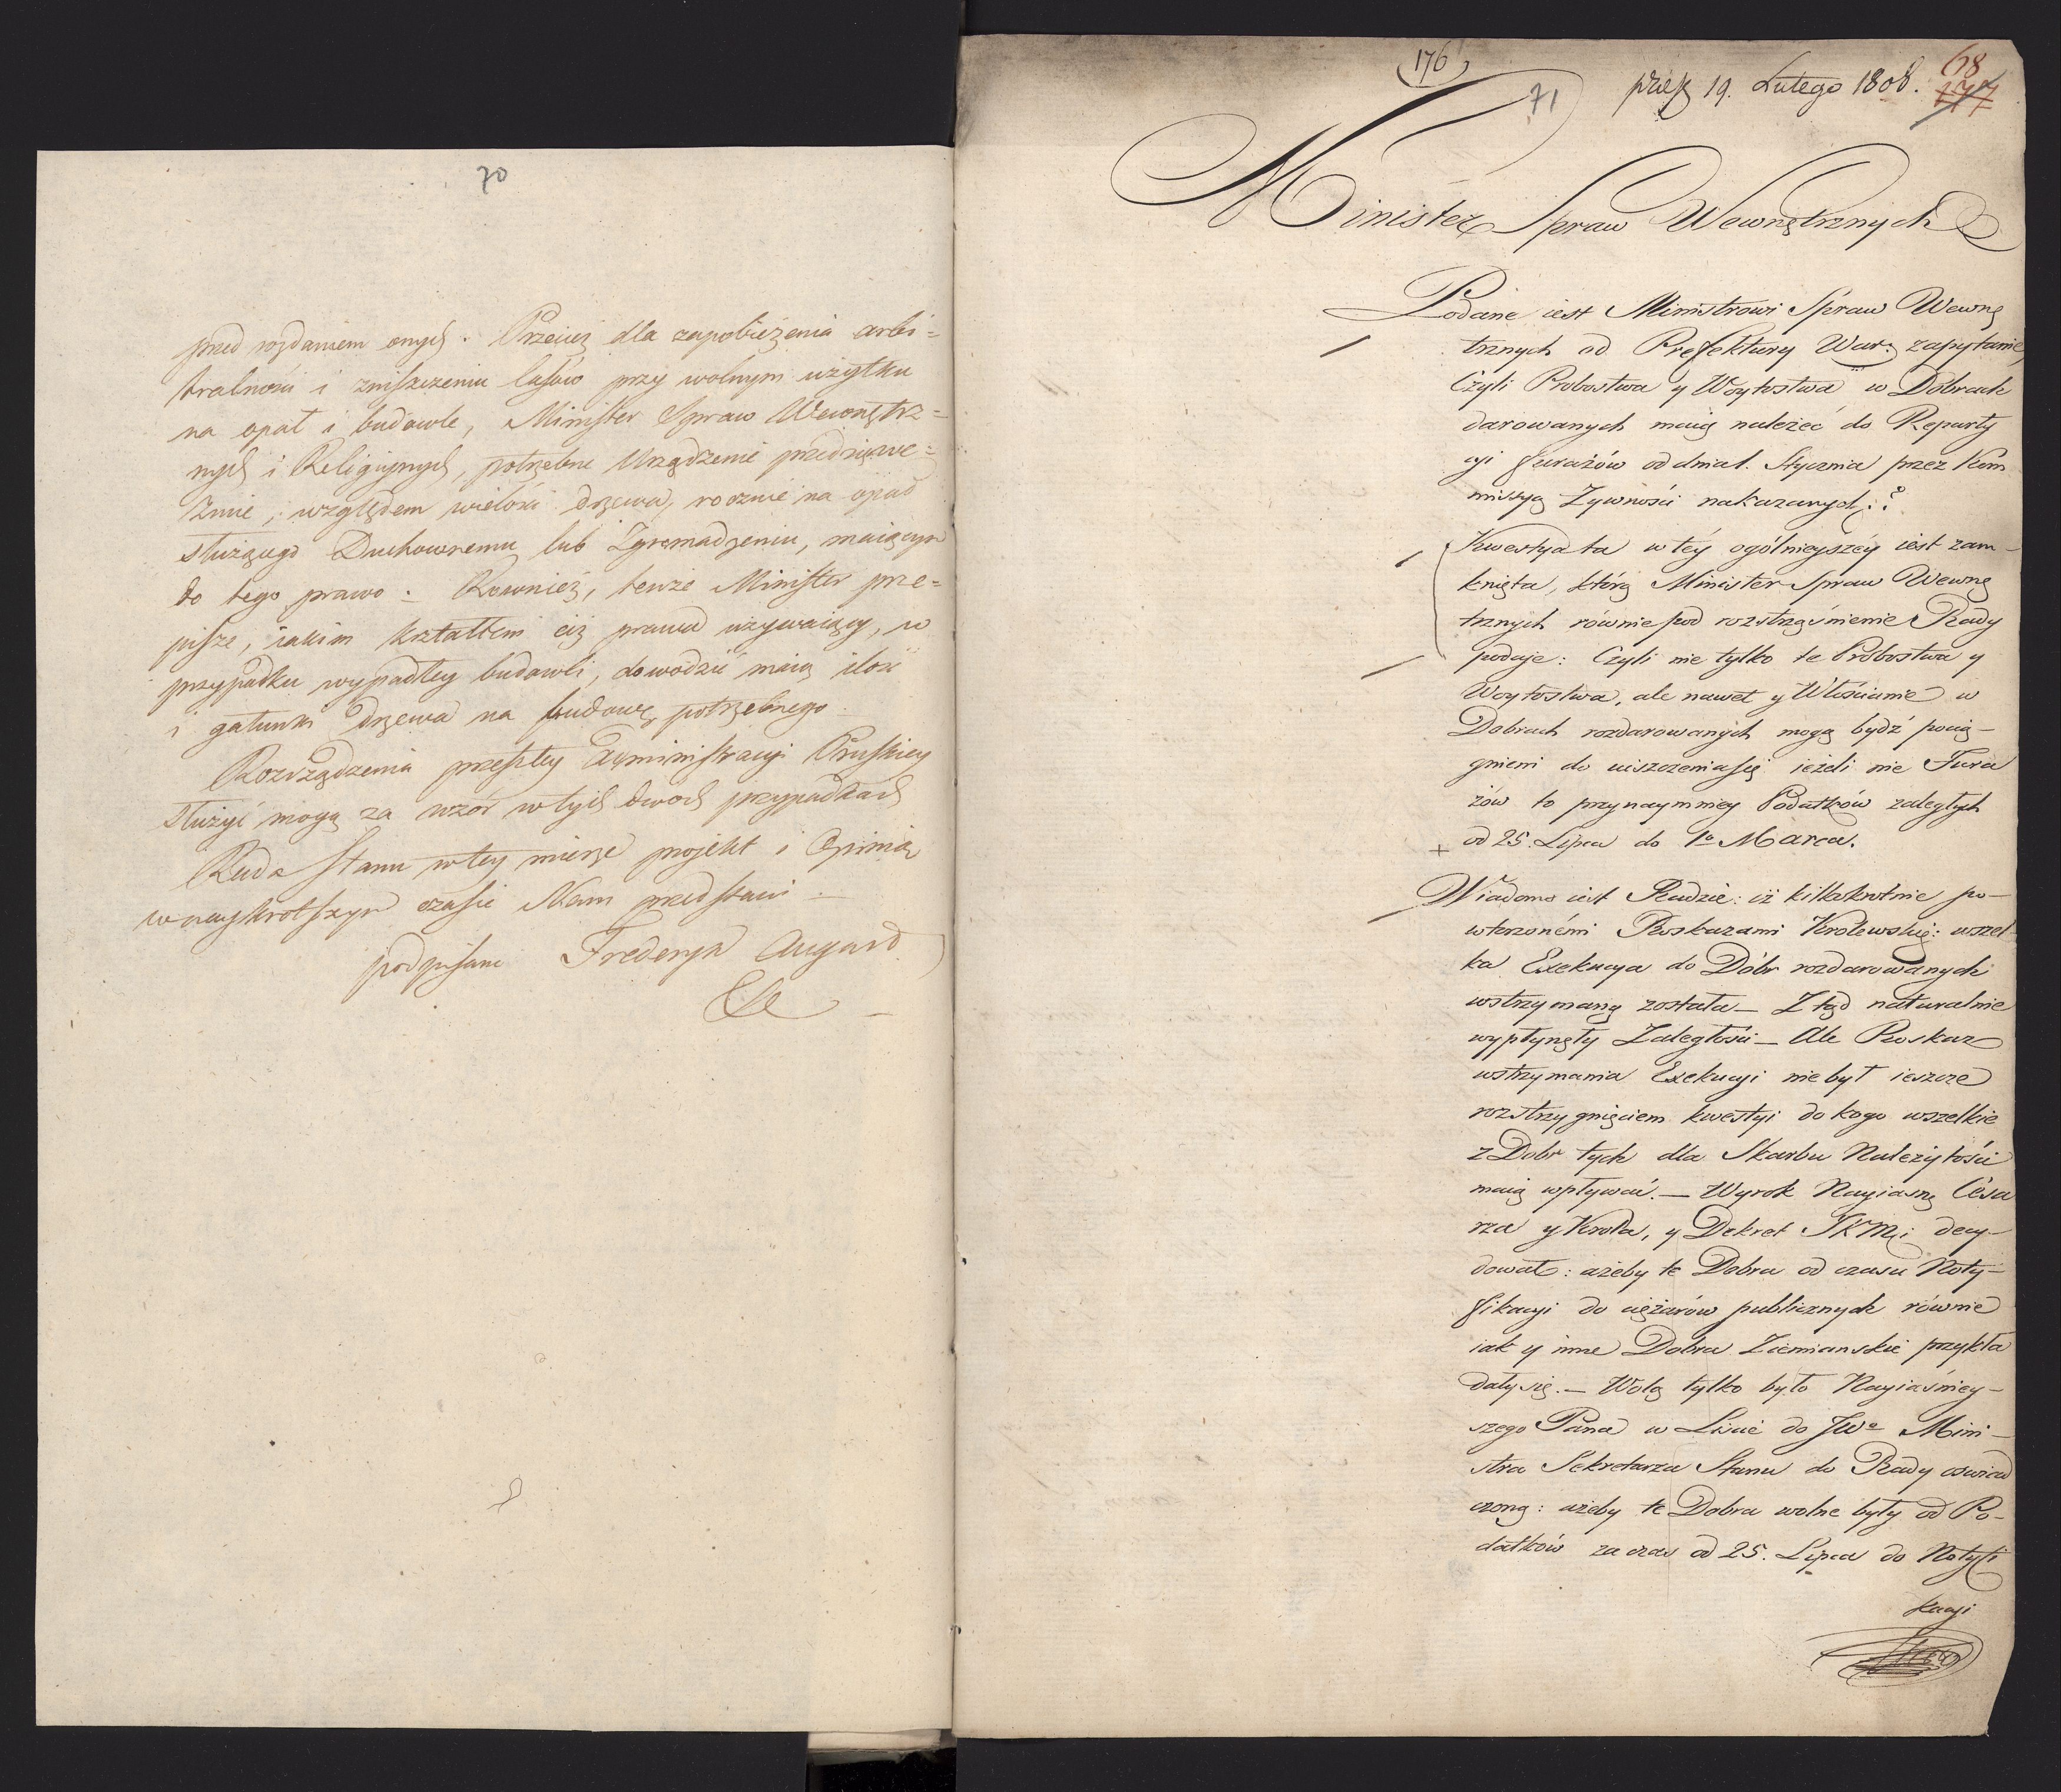 70
przed wydaniem onych. Przeciez dla zapobieżenia arbi=
tralności i zniszczeniu lasów przy wolnym użytku
na opał i budowle, Minister Spraw Wewnętrz=
nych i Religijnych, potrzebne Urządzenie przedsięwe=
źmie, względem wielości drzewa, rocznie na opał
służącego Duchownemu lub Zgromadzeniu, maiącym
do tego prawo. Rownież, tenże Minister prze=
pisze, iakim kształtem ciż prawa używaiący, w
przypadku wypadłey budowli, dowodzić maią ilość
i gatunki drzewa na budowę potrzebnego.
Rozrządzenia przeszłey Administracyi Pruskiey
służyć mogą za wzór w tych dwoch przypadkach
Rada Stanu w tey mierze projekt i Opinią
w nayskrotszym czasie Nam przedstawi.
podpisano Frederyk August
176
71
prięs 19. Lutego 1808.
68
177
Minister Spraw Wewnętrznych
Podane iest Ministrowi Spraw Wewnę
trznych od Prefektury War: zapytanie,
Czyli Probostwa y Woytostwa w Dobrach
darowanych maią należeć do Reparty
cyi furażów od dnia 1. Stycznia przez Kom
missyą Zywności nakazanych?
Kwestya ta w téy ogólnieyszéy iest zam-
knięta, którą Minister Spraw Wewnę
trznych równie pod rozstrząśnienie Rady
podaje: Czyli nie tylko te Probostwa y
Woytostwa, ale nawet y Włościanie w
Dobrach rozdarowanych mogą bydź pocią-
gnieni do uiszczenia się ieżeli nie Fura
żów to przynaymniey Podatków zaległych
+ od 25. Lipca do 1o Marca.
Wiadomo iest Radzie: iż kilkakrotnie po-
wtorzonémi Roskazami Krolewskię: wszel
ka Exekucya do Dóbr rozdarowanych
wstrzymaną została_ Z tąd naturalnie
wypłynęły Zaległości_ Ale Roskaz
wstrzymania Exekucyi nie był ieszcze
rozstrzygnięciem kwestyi do kogo wszelkie
z Dobr tych dla Skarbu Należytości
maią wpływać._ Wyrok Nayiasnę Césa
rza y Krola, y Dekret JKMci decy-
dował: ażeby te Dobra od czasu Noty-
fikacyi do ciężarów publicznych równie
iak y inne Dobra Ziemianskie przykła
dały się._ Wolą tylko było Nayiaśniey-
szego Pana w Liście do JWo Mini-
stra Sekretarza Stanu do Rady oswiad
czoną: ażeby te Dobra wolne były od Po-
datków za czas od 25. Lipca do Notyfi
kacyi